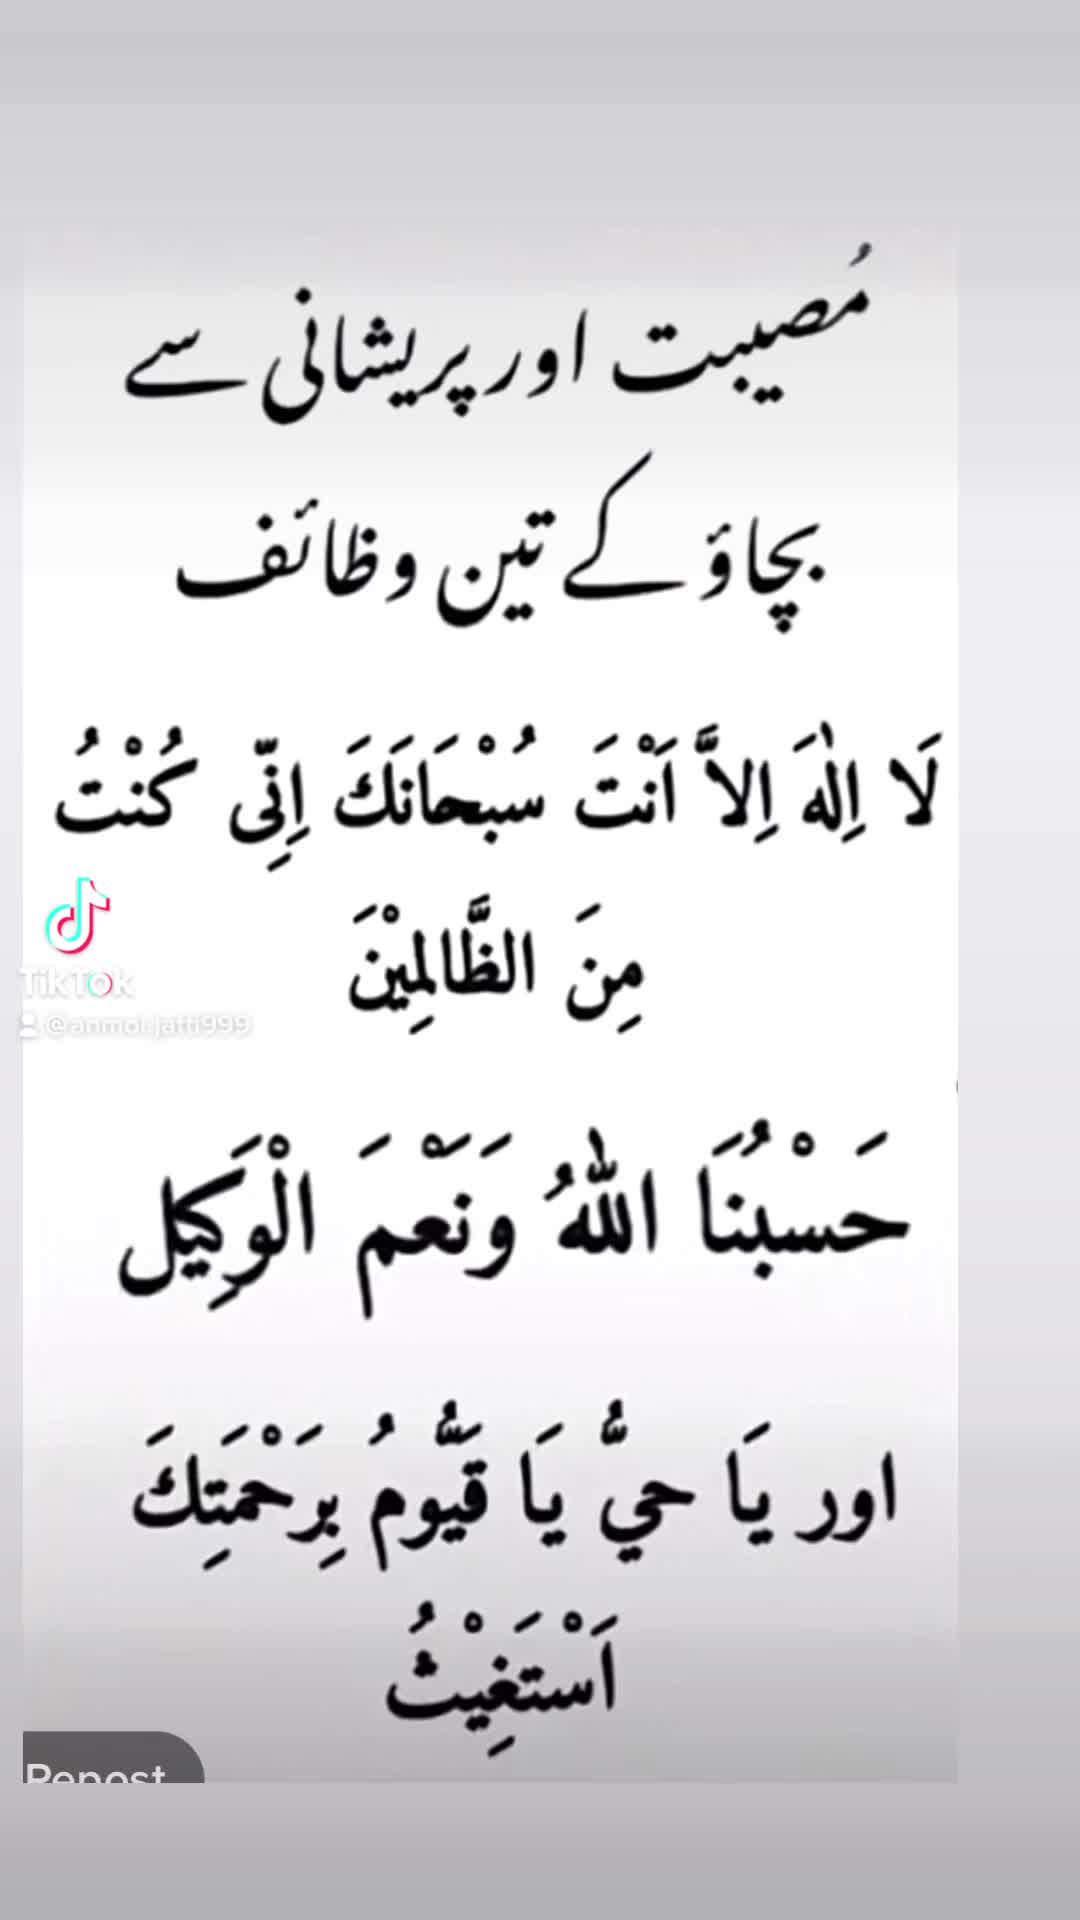 مُصیبت اور پریشانی سے
بچاؤ کے تین وظائف
لَا اِلٰهَ اِلاَّ اَنْتَ سُبْحَانَكَ اِنِّی كُنْتُ
مِنَ الظَّالِمِيْنَ
TikTok
حَسْبُنَا اللهُ وَنَعْمَ الْوَكِيل
اور يَا حيُّ يَا قَيُّومُ بِرَحْمَتِكَ
اَسْتَغِيْثُ
Repost